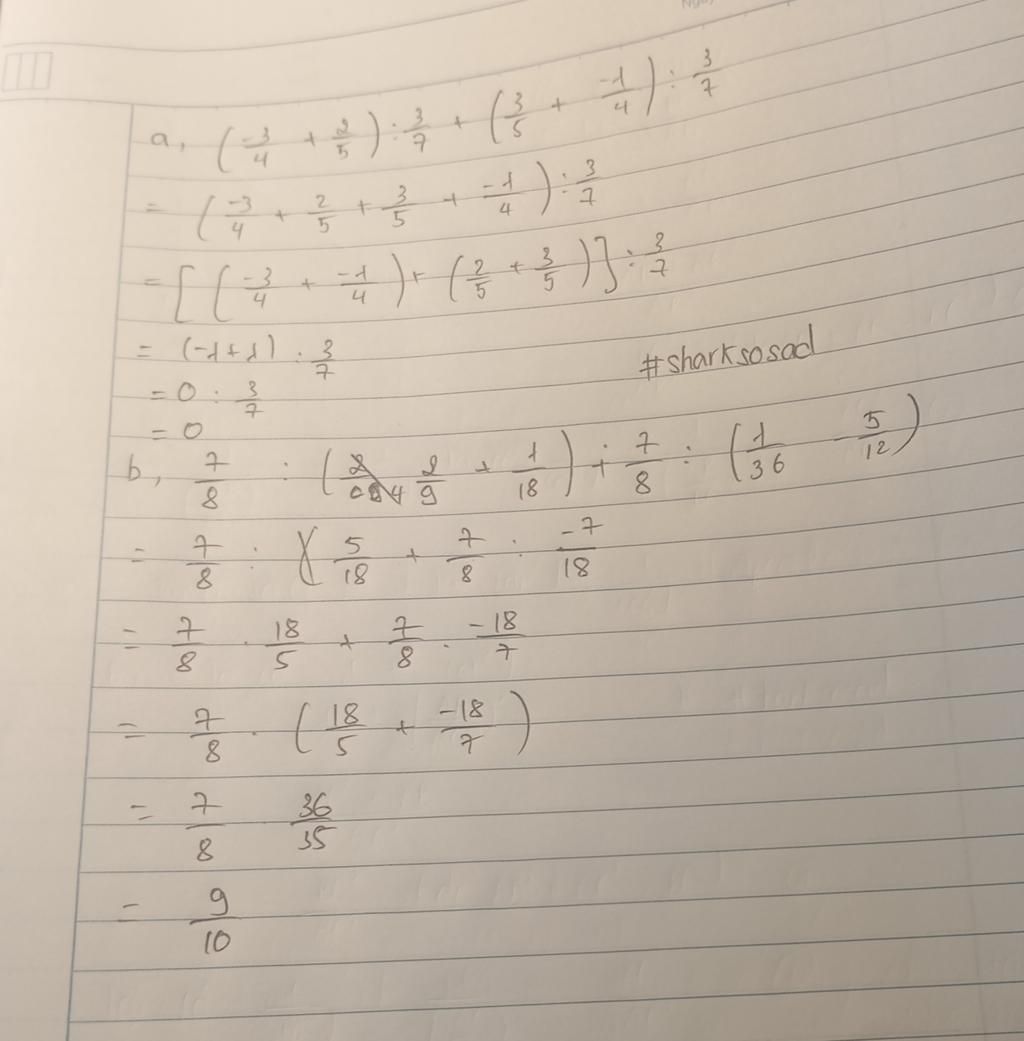 a, (-3/4 + 2/5) : 3/7 + (3/5 + -1/4) : 3/7
= (-3/4 + 2/5 + 3/5 + -1/4) : 3/7
= [(-3/4 + -1/4) + (2/5 + 3/5)] : 3/7
= (-1+1) . 3/7
#sharksosad
= 0 : 3/7
= 0
b, 7/8 : (2/9 + 1/18) + 7/8 : (1/36 - 5/12)
= 7/8 : 5/18 + 7/8 : -7/18
= 7/8 . 18/5 + 7/8 . -18/7
= 7/8 . (18/5 + -18/7)
= 7/8 36/35
= 9/10